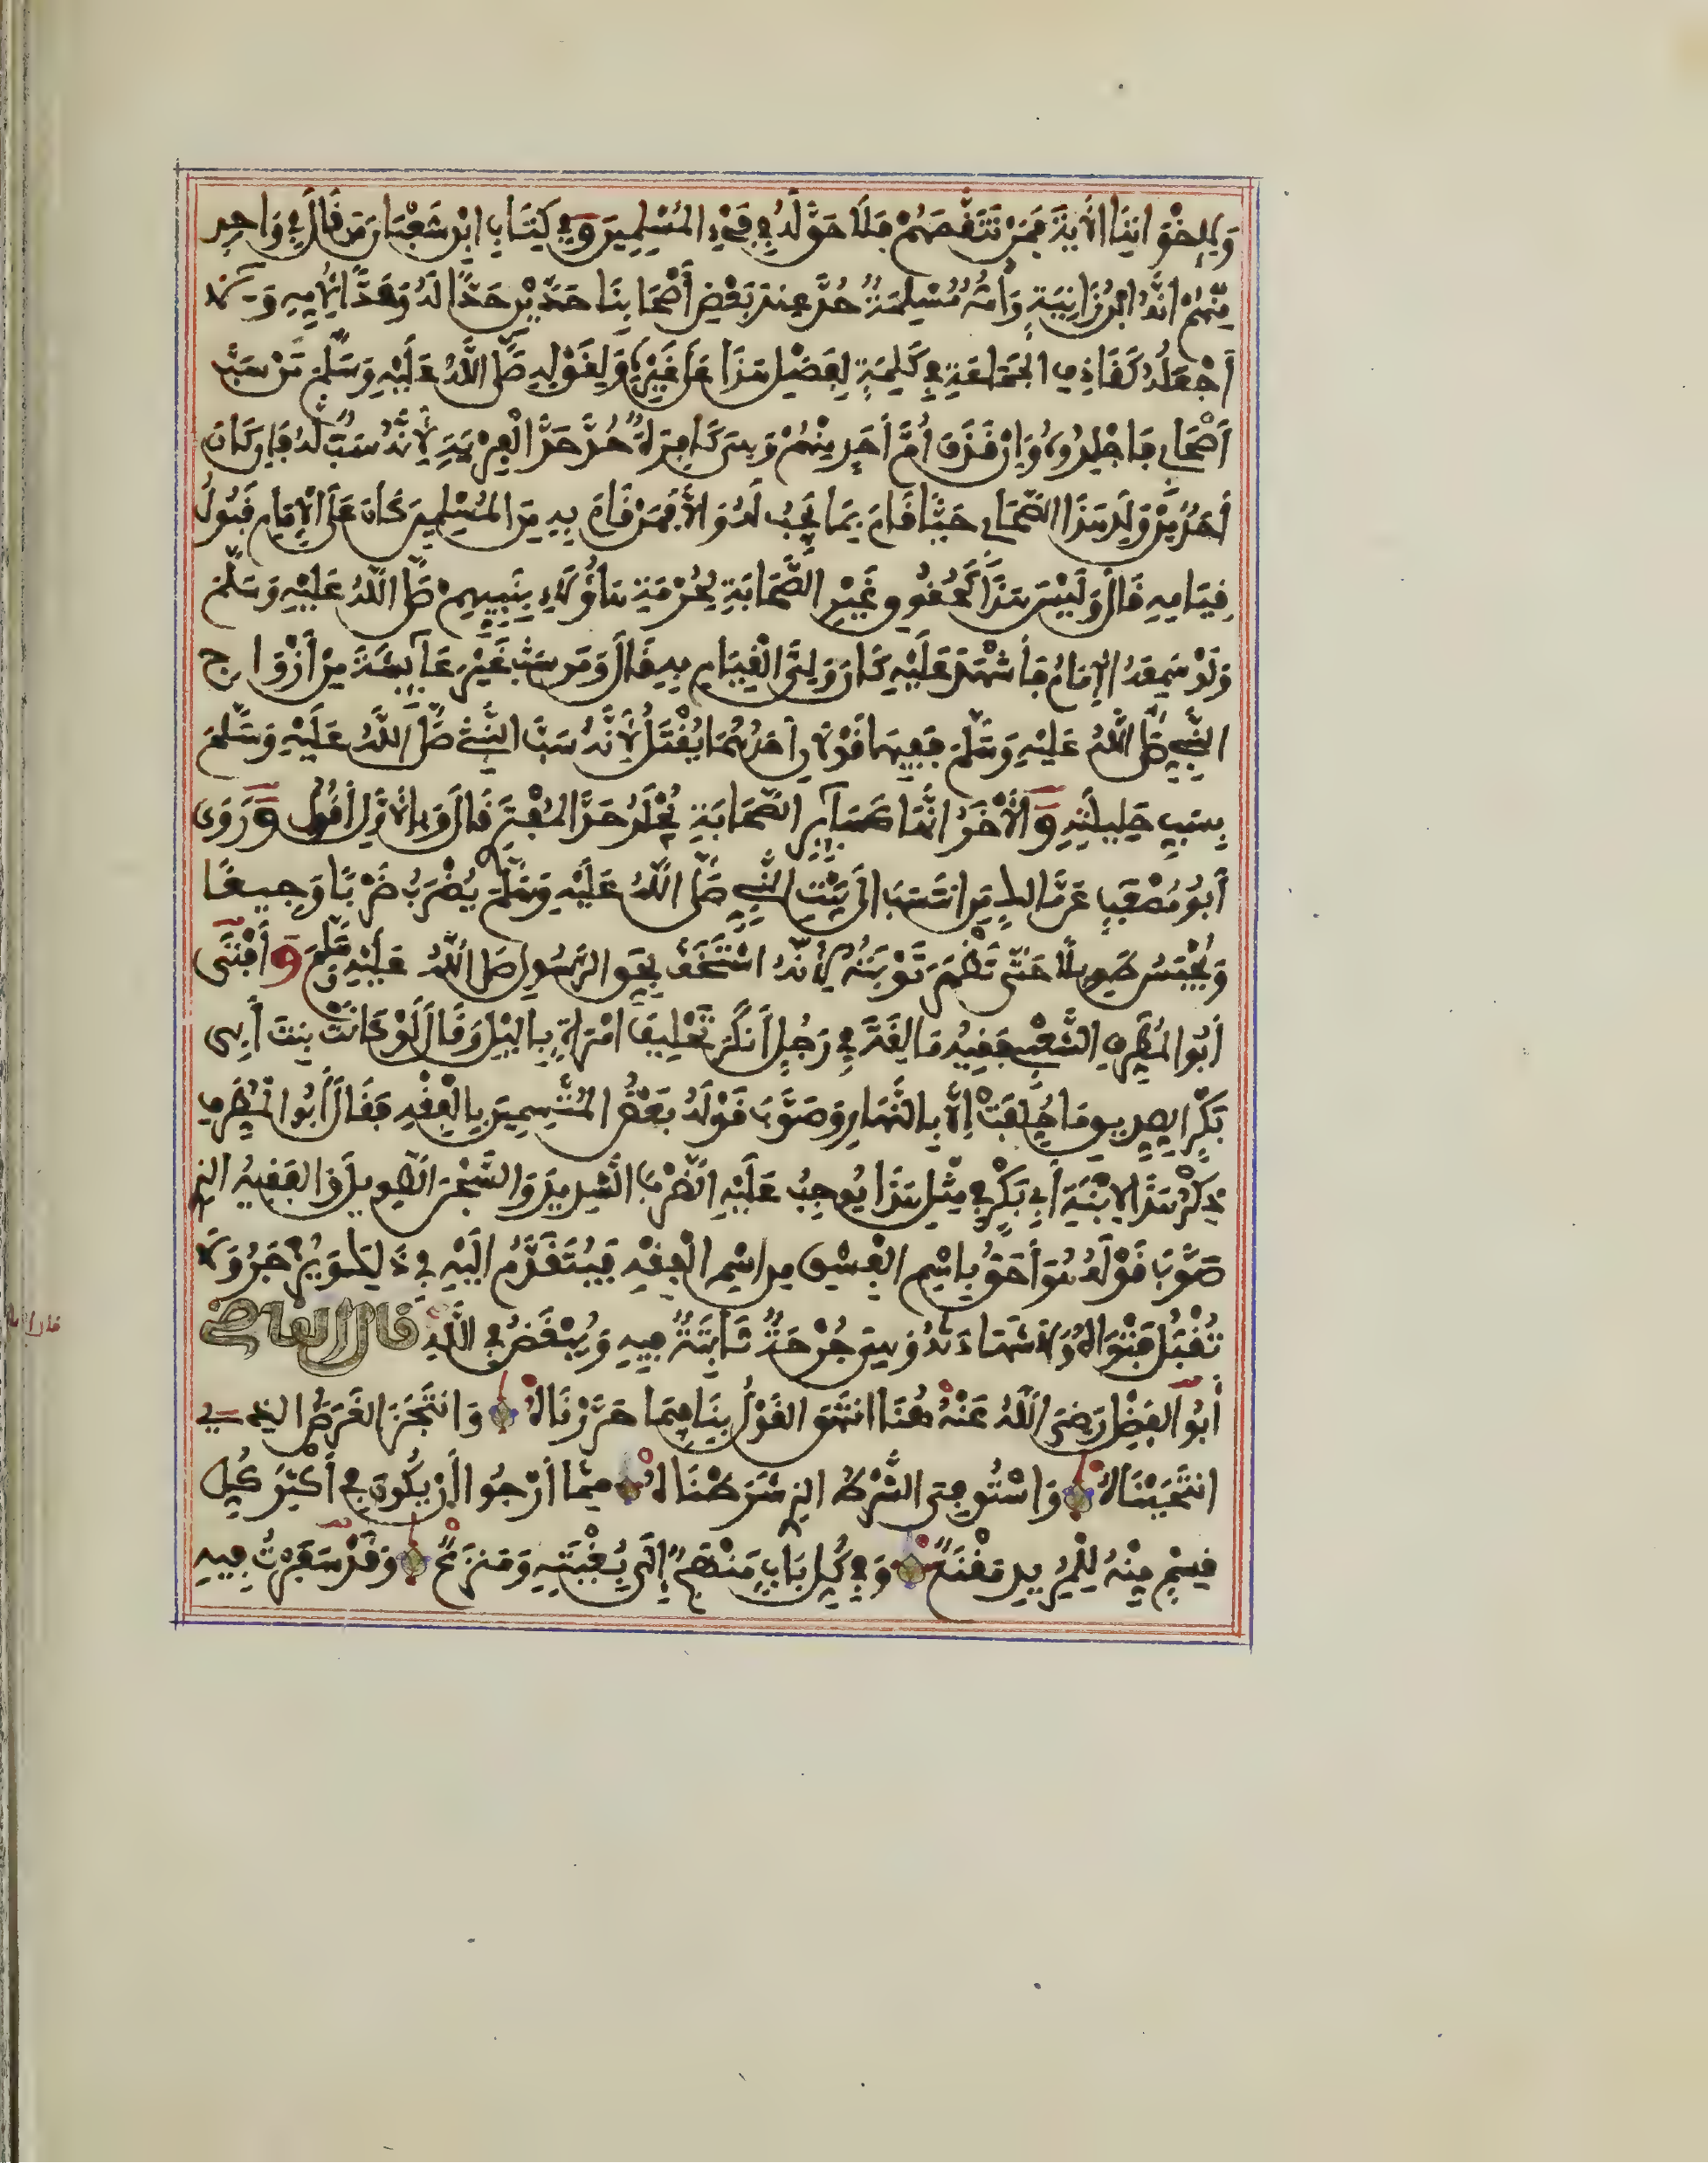 وَلِإِخْوَانِنَا الْآيَةَ فَمَنْ تَنَقَّصَهُمْ فَلَا حَقَّ لَهُ فِي فَيْءِ الْمُسْلِمِينَ وَفِي كِتَابِ ابْنِ شَعْبَانَ مَنْ قَالَ فِي وَاحِدٍ
مِنْهُمْ إِنَّهُ ابْنُ زَانِيَةٍ وَأُمُّهُ مُسْلِمَةٌ حُدَّ عِنْدَ بَعْضِ أَصْحَابِنَا حَدَّيْنِ حَدًّا لَهُ وَحَدًّا لِأُمِّهِ وَلَا
أَجْعَلُهُ كَقَاذِفِ الْجَمَاعَةِ فِي كَلِمَةٍ لِفَضْلِ هَذَا عَلَى غَيْرِهِ وَلِقَوْلِهِ صَلَّى اللَّهُ عَلَيْهِ وَسَلَّمَ مَنْ سَبَّ
أَصْحَابِي فَاجْلِدُوهُ وَإِنْ قَذَفَ أُمَّ أَحَدٍ مِنْهُمْ وَهِيَ كَافِرَةٌ حُدَّ حَدَّ الْفِرْيَةِ لِأَنَّهُ سَبٌّ لَهُ فَإِنْ كَانَ
أَحَدٌ مِنْ وَلَدِ هَذَا الصَّحَابِيِّ حَيًّا قَامَ بِمَا يَجِبُ لَهُ وَإِلَّا فَمَنْ قَامَ بِهِ مِنَ الْمُسْلِمِينَ كَانَ عَلَى الْإِمَامِ قَبُولُ
قِيَامِهِ قَالَ وَلَيْسَ هَذَا كَحُقُوقِ غَيْرِ الصَّحَابَةِ لِحُرْمَةِ هَاؤُلَاءِ بِنَبِيِّهِمْ صَلَّى اللَّهُ عَلَيْهِ وَسَلَّمَ
وَلَوْ سَمِعَهُ الْإِمَامُ فَأَشْهَدَ عَلَيْهِ كَانَ وَلِيَّ الْقِيَامِ بِهِ قَالَ وَمَنْ سَبَّ غَيْرَ عَائِشَةَ مِنْ أَزْوَاجِ
النَّبِيِّ صَلَّى اللَّهُ عَلَيْهِ وَسَلَّمَ فَفِيهَا قَوْلَانِ أَحَدُهُمَا يُقْتَلُ لِأَنَّهُ سَبَّ النَّبِيَّ صَلَّى اللَّهُ عَلَيْهِ وَسَلَّمَ
بِسَبِّ حَلِيلَتِهِ وَالْآخَرُ أَنَّهَا كَسَائِرِ الصَّحَابَةِ يُجْلَدُ حَدَّ الْمُفْتَرِي قَالَ وَبِالْأَوَّلِ أَقُولُ وَرَوَى
أَبُو مُصْعَبٍ عَنْ مَالِكٍ مَنِ انْتَسَبَ إِلَى بَيْتِ النَّبِيِّ صَلَّى اللَّهُ عَلَيْهِ وَسَلَّمَ يُضْرَبُ ضَرْبًا وَجِيعًا
وَيُحْبَسُ طَوِيلًا حَتَّى تَظْهَرَ تَوْبَتُهُ لِأَنَّهُ اسْتَخَفَّ بِحَقِّ الرَّسُولِ صَلَّى اللَّهُ عَلَيْهِ وَسَلَّمَ وَأَفْتَى
أَبُو الْمُطَرِّفِ الشَّعْبِيُّ فَقِيهُ مَالَقَةَ فِي رَجُلٍ أَنْكَرَ تَحْلِيفَ امْرَأَةٍ بِاللَّيْلِ وَقَالَ لَوْ كَانَتْ بِنْتَ أَبِي
بَكْرٍ الصِّدِّيقِ مَا حُلِّفَتْ إِلَّا بِالنَّهَارِ وَصَوَّبَ قَوْلَهُ بَعْضُ الْمُتَّسِمِينَ بِالْفِقْهِ فَقَالَ أَبُو الْمُطَرِّفِ
ذِكْرُ هَذَا لِابْنَةِ أَبِي بَكْرٍ فِي مِثْلِ هَذَا يُوجِبُ عَلَيْهِ الضَّرْبَ الشَّدِيدَ وَالسَّجْنَ الطَّوِيلَ وَالْفَقِيهُ الَّذِي
صَوَّبَ قَوْلَهُ هُوَ أَحَقُّ بِاسْمِ الْفِسْقِ مِنِ اسْمِ الْفِقْهِ فَيُتَقَدَّمُ إِلَيْهِ فِي ذَلِكَ وَيُزْجَرُ وَلَا
تُقْبَلُ فَتْوَاهُ وَلَا شَهَادَتُهُ وَهِيَ جُرْحَةٌ ثَابِتَةٌ فِيهِ وَيُبْغَضُ فِي اللَّهِ قَالَ الْقَاضِي
أَبُو الْفَضْلِ رَضِيَ اللَّهُ عَنْهُ هُنَا انْتَهَى الْقَوْلُ بِنَا فِيمَا حَرَّرْنَاهُ وَانْتَجَزَ الْغَرَضُ الَّذِي
انْتَحَيْنَاهُ وَاسْتُوفِيَ الشَّرْطُ الَّذِي شَرَطْنَاهُ مِمَّا أَرْجُو أَنْ يَكُونَ فِي أَكْثَرِ كُلِّ
قِسْمٍ مِنْهُ لِلْمُرِيدِ مَقْنَعٌ وَفِي كُلِّ بَابٍ مَنْهَجٌ إِلَى بُغْيَتِهِ وَمَنْزَعٌ وَقَدْ سَفَرْتُ فِيهِ